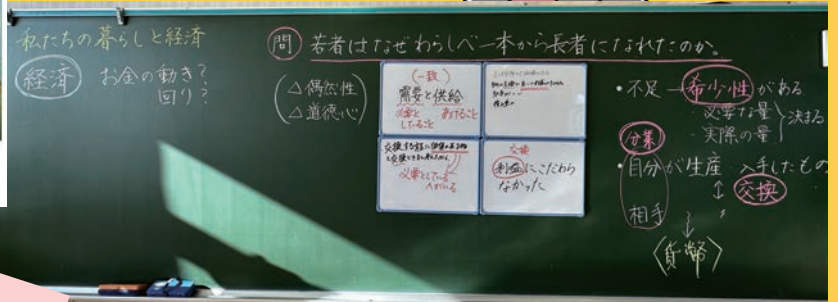 私たちの暮らしと経済
経済
お金の動き?
回り?
問 若者はなぜわらしべ一本から長者になれたのか。
△偶然性
△道徳心
(一致)
需要と供給
必要と
していること
あげること
交換する前に価値のある物
と交換できると考えたから
必要としている
人がいる
交換
利益にこだわら
なかった
・不足→希少性がある
・必要な量
・実際の量
決まる
分業
・自分が生産 入手したもの
↕
交換
相手
〈貨幣〉